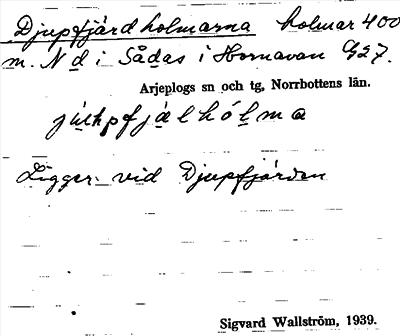 Djupfjärdholmarna holmar 400
m. N d i Sådas i Hornavan G27.
Arjeplogs sn och tg, Norrbottens län.
júhpfjàlhólma
Ligger vid Djupfjärden
Sigvard Wallström, 1939.